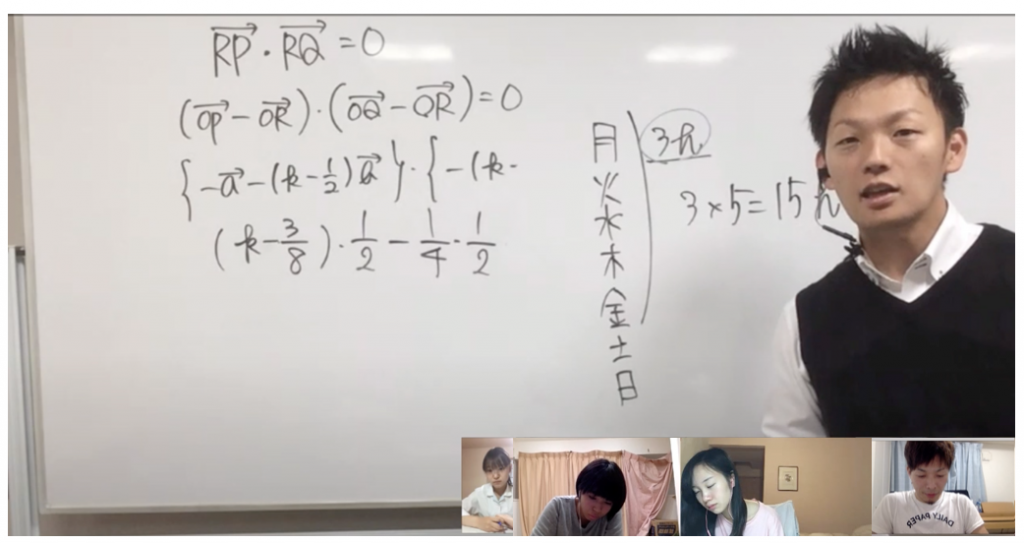 RP・RQ=0
(OP-OR)・(OQ-OR)=0
{-a-(k-1/2)a}・{-(k-
(k-3/8)・1/2-1/4・1/2
月
火
水
木
金
土
日
3h
3×5=15h
DAILY PAPER